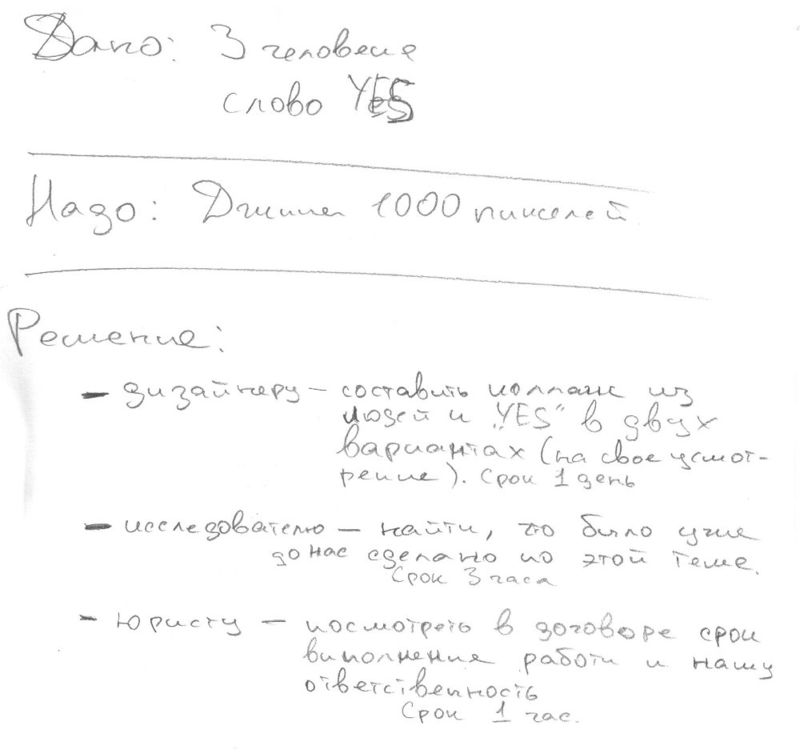 Дано: 3 человека
слово YES
Надо: Длина 1000 пикселей
Решение:
- дизайнеру - составить коллаж из
людей и „YES" в двух
вариантах (на свое усмот-
рение). Срок 1 день
- исследователю - найти, что было уже
до нас сделано по этой теме.
Срок 3 часа
- юристу - посмотреть в договоре срок
выполнения работы и нашу
ответственность
Срок 1 час.